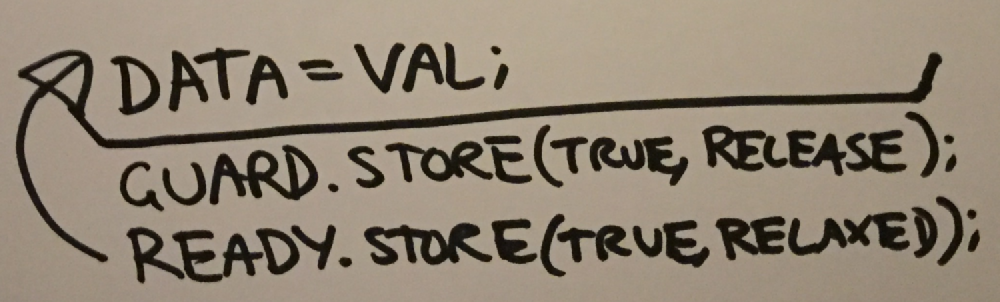 DATA = VAL;
GUARD.STORE(TRUE, RELEASE);
READY.STORE(TRUE, RELAXED));